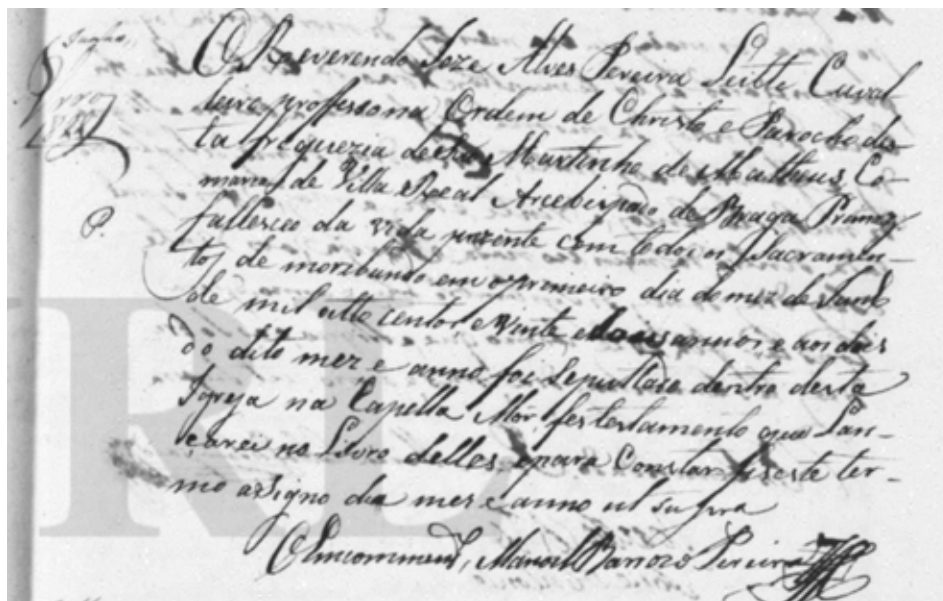 O Reverendo Joze Alves Pereira Leitte Caval
leiro professo na Ordem de Christo e Parocho des-
ta freguezia de São Martinho de Matheus Co-
marca de Villa Real Arcebispado de Braga Primaz
falleceo da vida prezente com todos os Sacramen-
tos de moribundo em o primeiro dia do mez de Junho
de mil oitto centos e vinte e dous annos e aos dois
do dito mez e anno foi sepultado dentro desta
Igreja na Capella Mor, fes testamento que lan-
çarei no Livro delles e para constar fis este ter-
mo assigno dia mes e anno ut supra
O Encommend, Manoel Barrozo Pereira
P.
RL